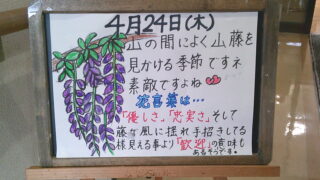 4月24日(木)
山の間によく山藤を
見かける季節ですネ
素敵ですよね
花言葉は…
「優しさ」「忠実さ」そして
藤が風に揺れ手招きしてる
様に見える事より「歓迎」の意味も
あるそうです。